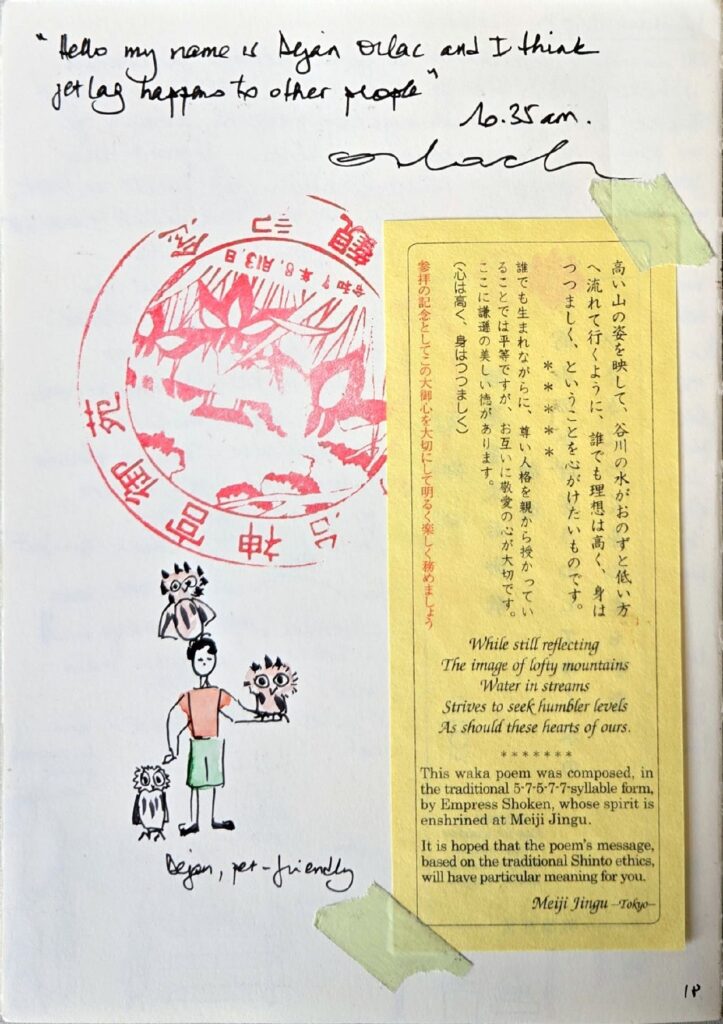 "Hello my name is Dejan Orlac and I think
jetlag happens to other people"
10.35am.
令和7年8月13日
神宮御苑
高い山の姿を映して、谷川の水がおのずと低い方
へ流れて行くように、誰でも理想は高く、身は
つつましく、ということを心がけたいものです。
*****
誰でも生まれながらに、尊い人格を親から授かってい
ることでは平等ですが、お互いに敬愛の心が大切です。
ここに謙遜の美しい徳があります。
(心は高く、身はつつましく)
参拝の記念としてこの大御心を大切にして明るく楽しく務めましょう
While still reflecting
The image of lofty mountains
Water in streams
Strives to seek humbler levels
As should these hearts of ours.
*******
This waka poem was composed, in
the traditional 5-7-5-7-7-syllable form,
by Empress Shoken, whose spirit is
enshrined at Meiji Jingu.
It is hoped that the poem's message,
based on the traditional Shinto ethics,
will have particular meaning for you.
Meiji Jingu –Tokyo–
Dejan, pet-friendly
18